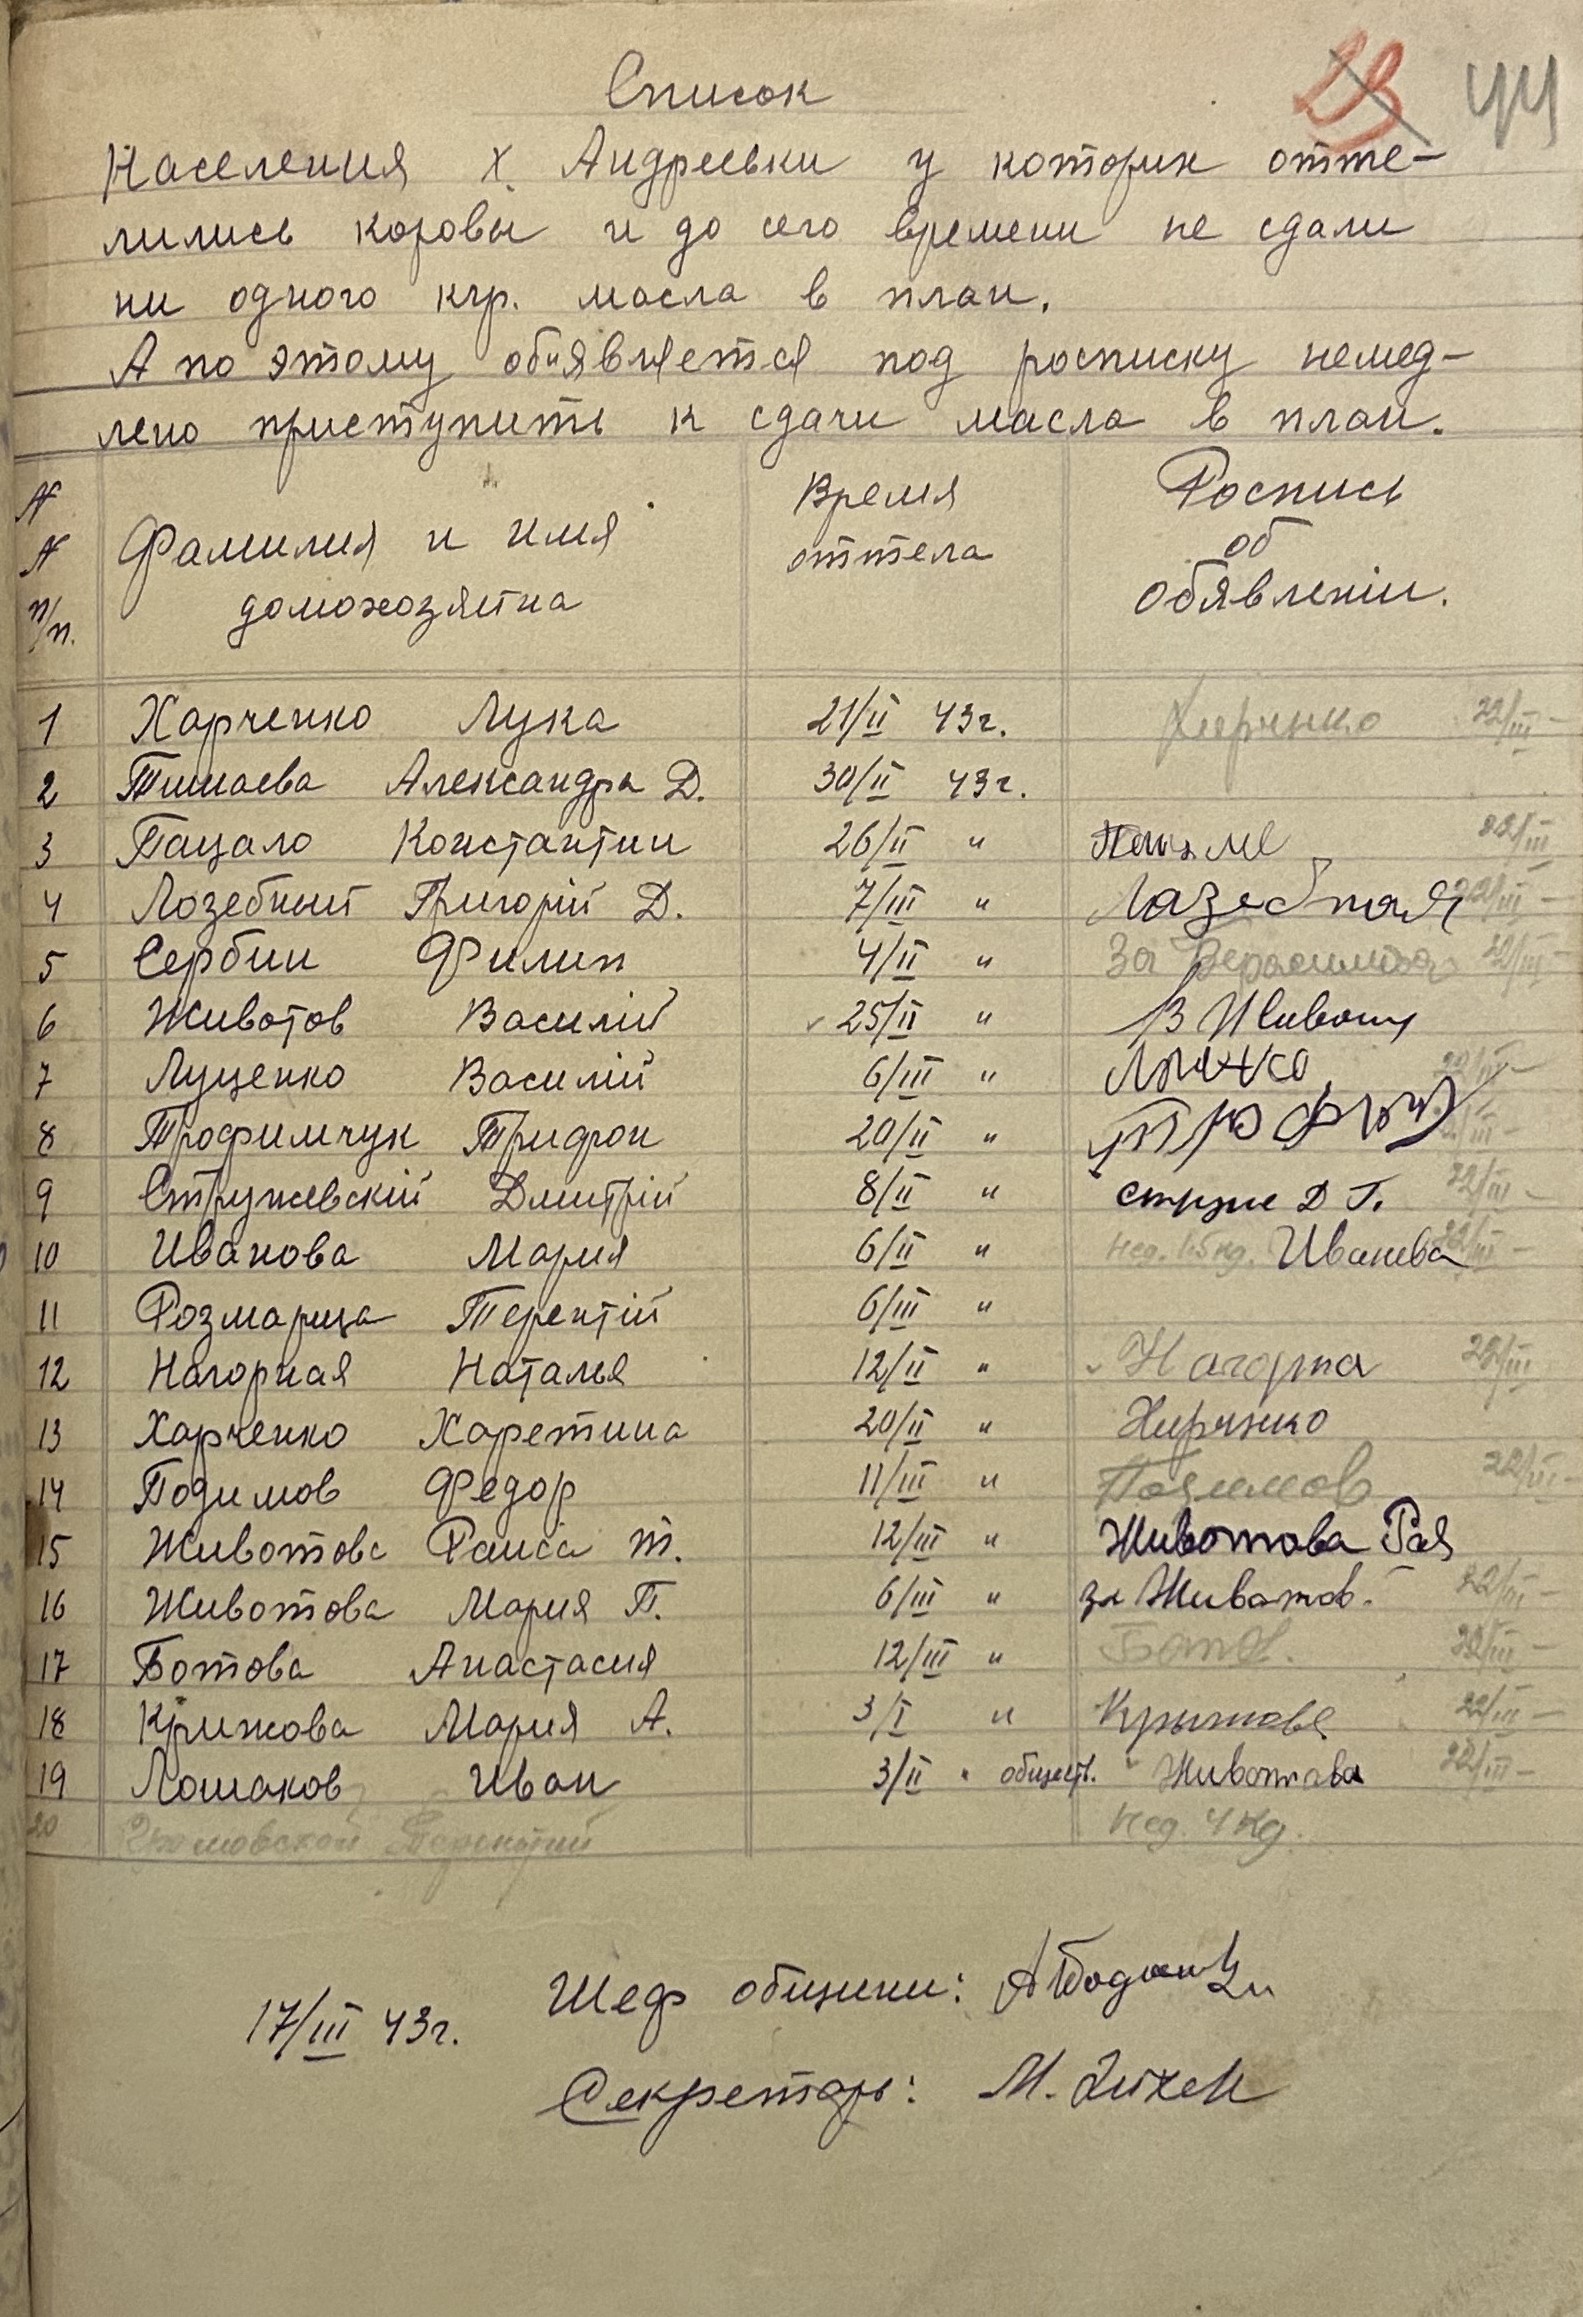 23 44
Список
Населения х. Андреевки у которих отте-
лились коровы и до сего времени не сдали
ни одного кгр. масла в план.
А по этому обиявляется под росписку немед-
лено приступить к сдачи масла в план.
N N п/п. Фамилия и имя домохозяина Время оттела Роспись об обявленіи.
1 Харченко Лука 21/II 43г. Харченко 22/III
2 Тимаева Александра Д. 30/II 43г.
3 Пацало Константин 26/II " 22/III
4 Лозебный Григорій Д. 7/III " Лазебная 22/III
5 Сербин Филип 4/II " За 22/III
6 Животов Василій 25/II " В Живот
7 Луценко Василій 6/III " 22/III
8 Трофимчук Трифон 20/II " Трофим
9 Стружевскій Дмитрій 8/II " струже Д Г. 22/III
10 Иванова Мария 6/II " Иванева 22/III
11 Розмарица Терентій 6/III "
12 Нагорная Наталья 12/II " Нагорна 22/III
13 Харченко Харетина 20/II " Хирченко
14 Подимов Федор 11/III " Подимов 22/III
15 Животова Раиса Т. 12/III " Животова Рая
16 Животова Мария П. 6/III " за Животов. 22/III
17 Ботова Анастасия 12/III " Ботов. 22/III
18 Крижова Мария А. 3/I " Крыжова 22/III
19 Лошаков Иван 3/II " обществ. Животова 22/III
20 Терентий Нед. 4 кг.
17/III 43г. Шеф общины:
Секретарь: М.